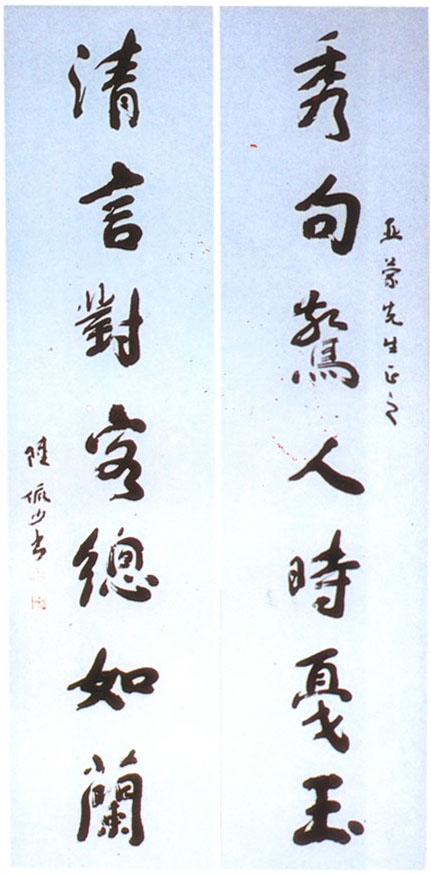 亚蒙先生正之
秀句驚人時戛玉
清言對客總如蘭
陸少書